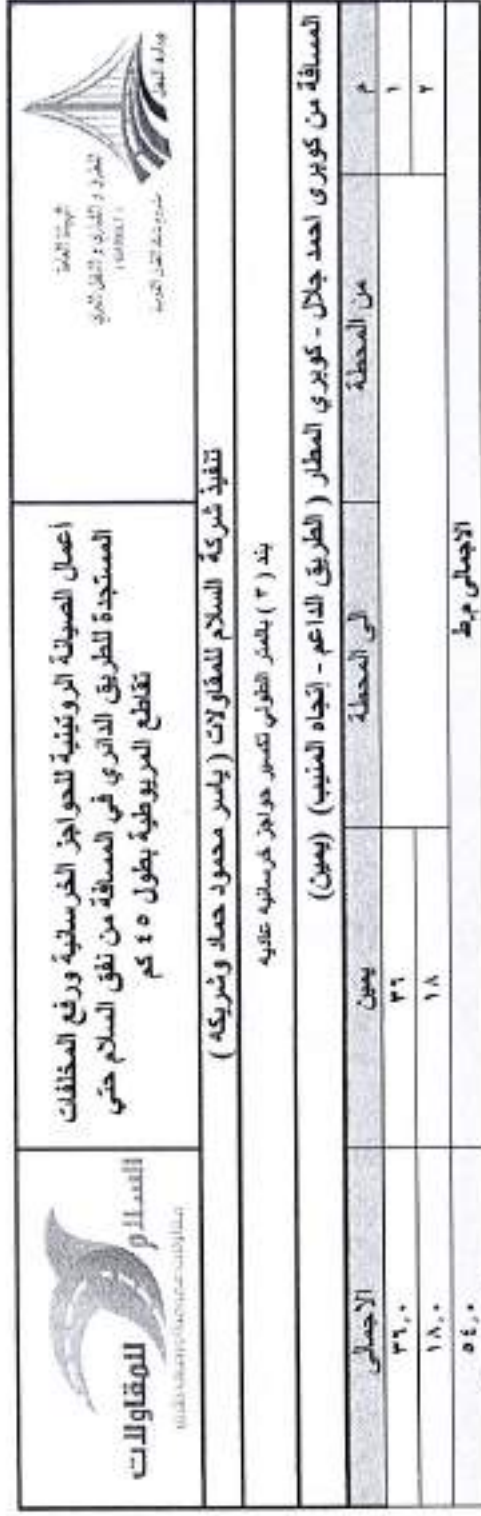 وزارة النقل
الهيئة العامة
للطرق و الكبارى و النقل البري
(GARBLT)
أعمال الصيانة الروتينية للحواجز الخرسانية ورفع المخلفات
المستجدة للطريق الدائري في المسافة من نفق السلام حتي
تقاطع المريوطية بطول ٤٥ كم
السلام
للمقاولات
تنفيذ شركة السلام للمقاولات ( ياسر محمود حماد وشريكه )
بند ( ٣ ) بالمتر الطولي تكسير حواجز خرسانيه عاديه
المسافة من كوبرى احمد جلال - كوبري المطار ( الطريق الداعم - إتجاه المنيب) (يمين)
م من المحطة الى المحطة يمين الاجمالى
١ ٣٦ ٣٦,٠
٢ ١٨ ١٨,٠
الاجمالى م.ط ٥٤,٠